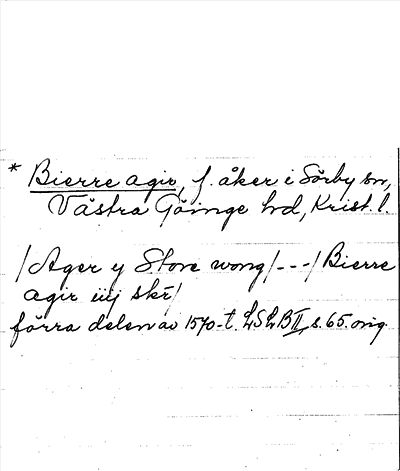 * Bierre agir, f. åker i Sörby sn,
Västra Göinge hd, Krist. l.
/Ager y Store wong/---/Bierre
agir iiij skr̄/
förra delen av 1570-t. LSLB II, s. 65. orig.